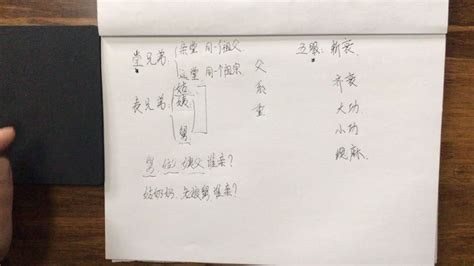 堂兄弟
亲堂 同一个祖父
远堂 同一个祖宗
表兄弟
姑
姨
舅
父
系
重
五服: 斩衰
齐衰
大功
小功
缌麻
舅, 伯, 姨父 谁亲?
姑奶奶, 老娘舅, 谁亲?